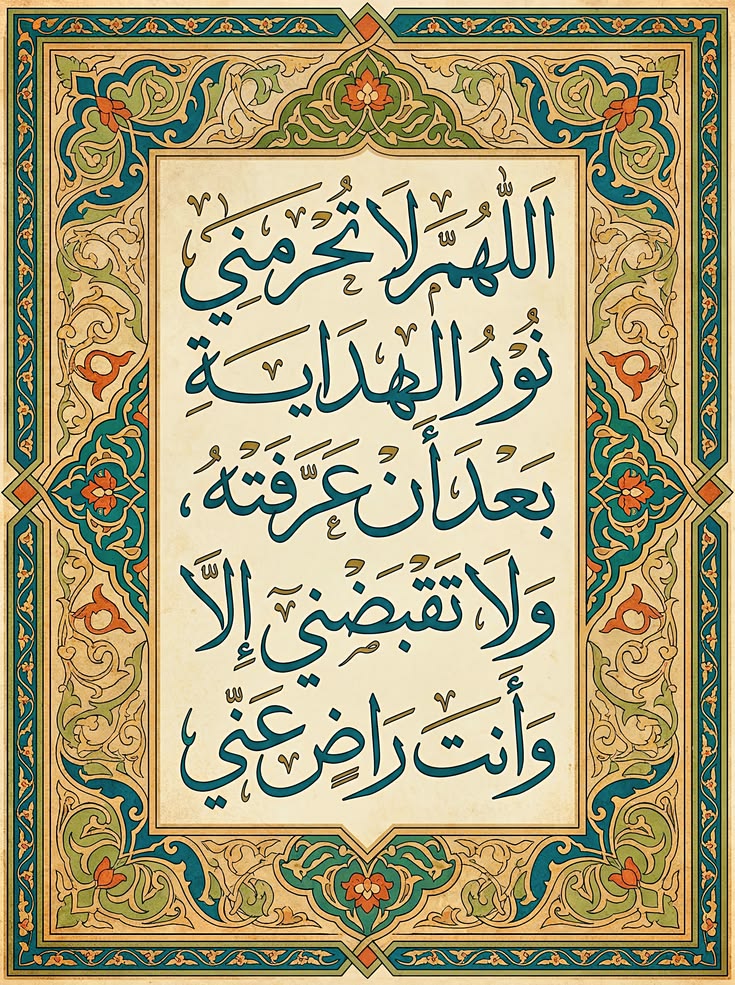 اَللّٰهُمَّ لَا تَحْرِمْنِي
نُوْرُ الْهِدَايَةِ
بَعْدَ أَنْ عَرَّفْتَهُ،
وَلَا تَقْبِضْنِي إِلَّا
وَأَنْتَ رَاضٍ عَنِّي